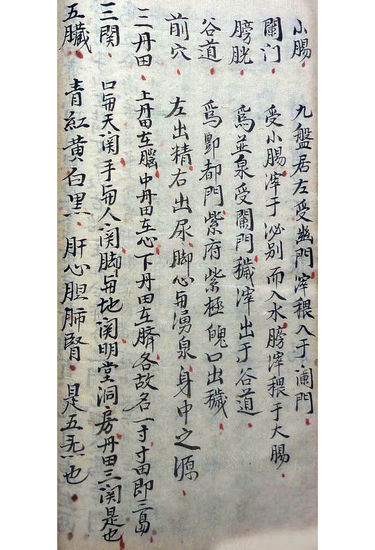 小腸 九盤居左受幽門滓稂入于闌門
闌门 受小腸滓于泌别而入水膀滓稂于大腸
膀胱 爲並泉受闌門穢滓出于谷道
谷道 爲酆都門紫府紫極魄口出穢
前穴 左出精右出尿脚心為湧泉身中之源
三丹田 上丹田在腦中丹田在心下丹田在臍各故名一寸寸田即三島
三関 口為天関手為人関脚為地関明堂洞房丹田三関是也
五臟 青紅黄白黒肝心胆肺腎是五炁也